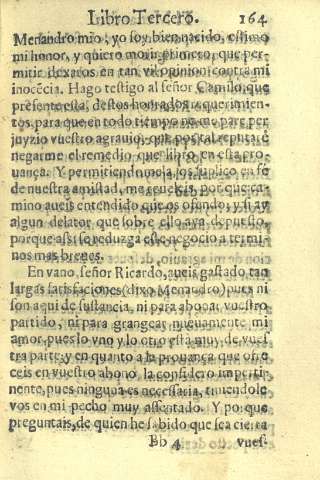 Libro Tercero. 164
Menandro mio; yo soy bien nacido, estimo
mi honor, y quiero morir primero, que per-
mitir dexaros en tan vil opinion contra mi
inocẽcia. Hago testigo al señor Camilo, que
presente esta, destos honrados requerimien-
tos, para que en todo tiempo no me pare per
juyzio vuestro agrauio, que por tal reputarè
negarme el remedio, que libro en esta pro-
uança. Y permitiendomela, os suplico en fe
de nuestra amistad, me reueleis, por que ca-
mino aueis entendido que os ofendo; y si ay
algun delator que sobre ello aya depuesto,
porque assi se reduzga este negocio a termi-
nos mas breues.
En vano, señor Ricardo, aueis gastado tan
largas satisfaciones (dixo Menandro) pues ni
son aqui de sustancia, ni para abonar vuestro
partido, ni para grangear nueuamente mi
amor, pues lo vno y lo otro està muy de vues
tra parte; y en quanto a la prouança que ofre
ceis en vuestro abono, la considero imperti-
nente, pues ninguna es necessaria, teniendole
vos en mi pecho muy assentado. Y porque
preguntais, de quien he sabido que sea cierta
Bb 4 vues-